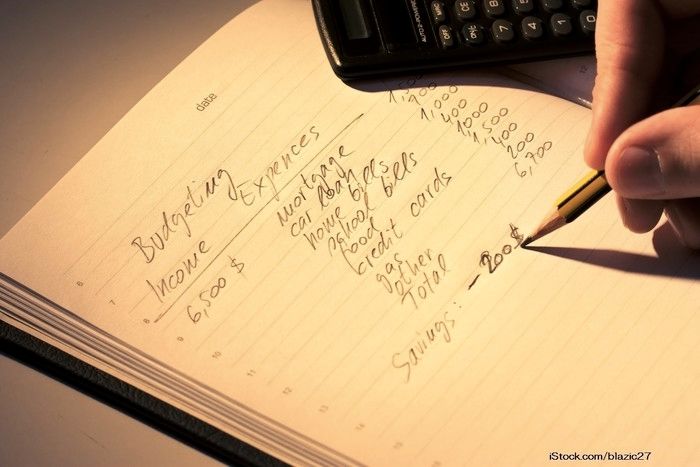 date
Budgeting
Income Expences
6,500 $
mortgage
car loan
home bills
school bills
food
credit cards
gas
other
Total
1,000
400
1000
500
1,400
200
6,700
Savings: - 200$
6
7
8
9
10
11
12
13
14
15
iStock.com/blazic27